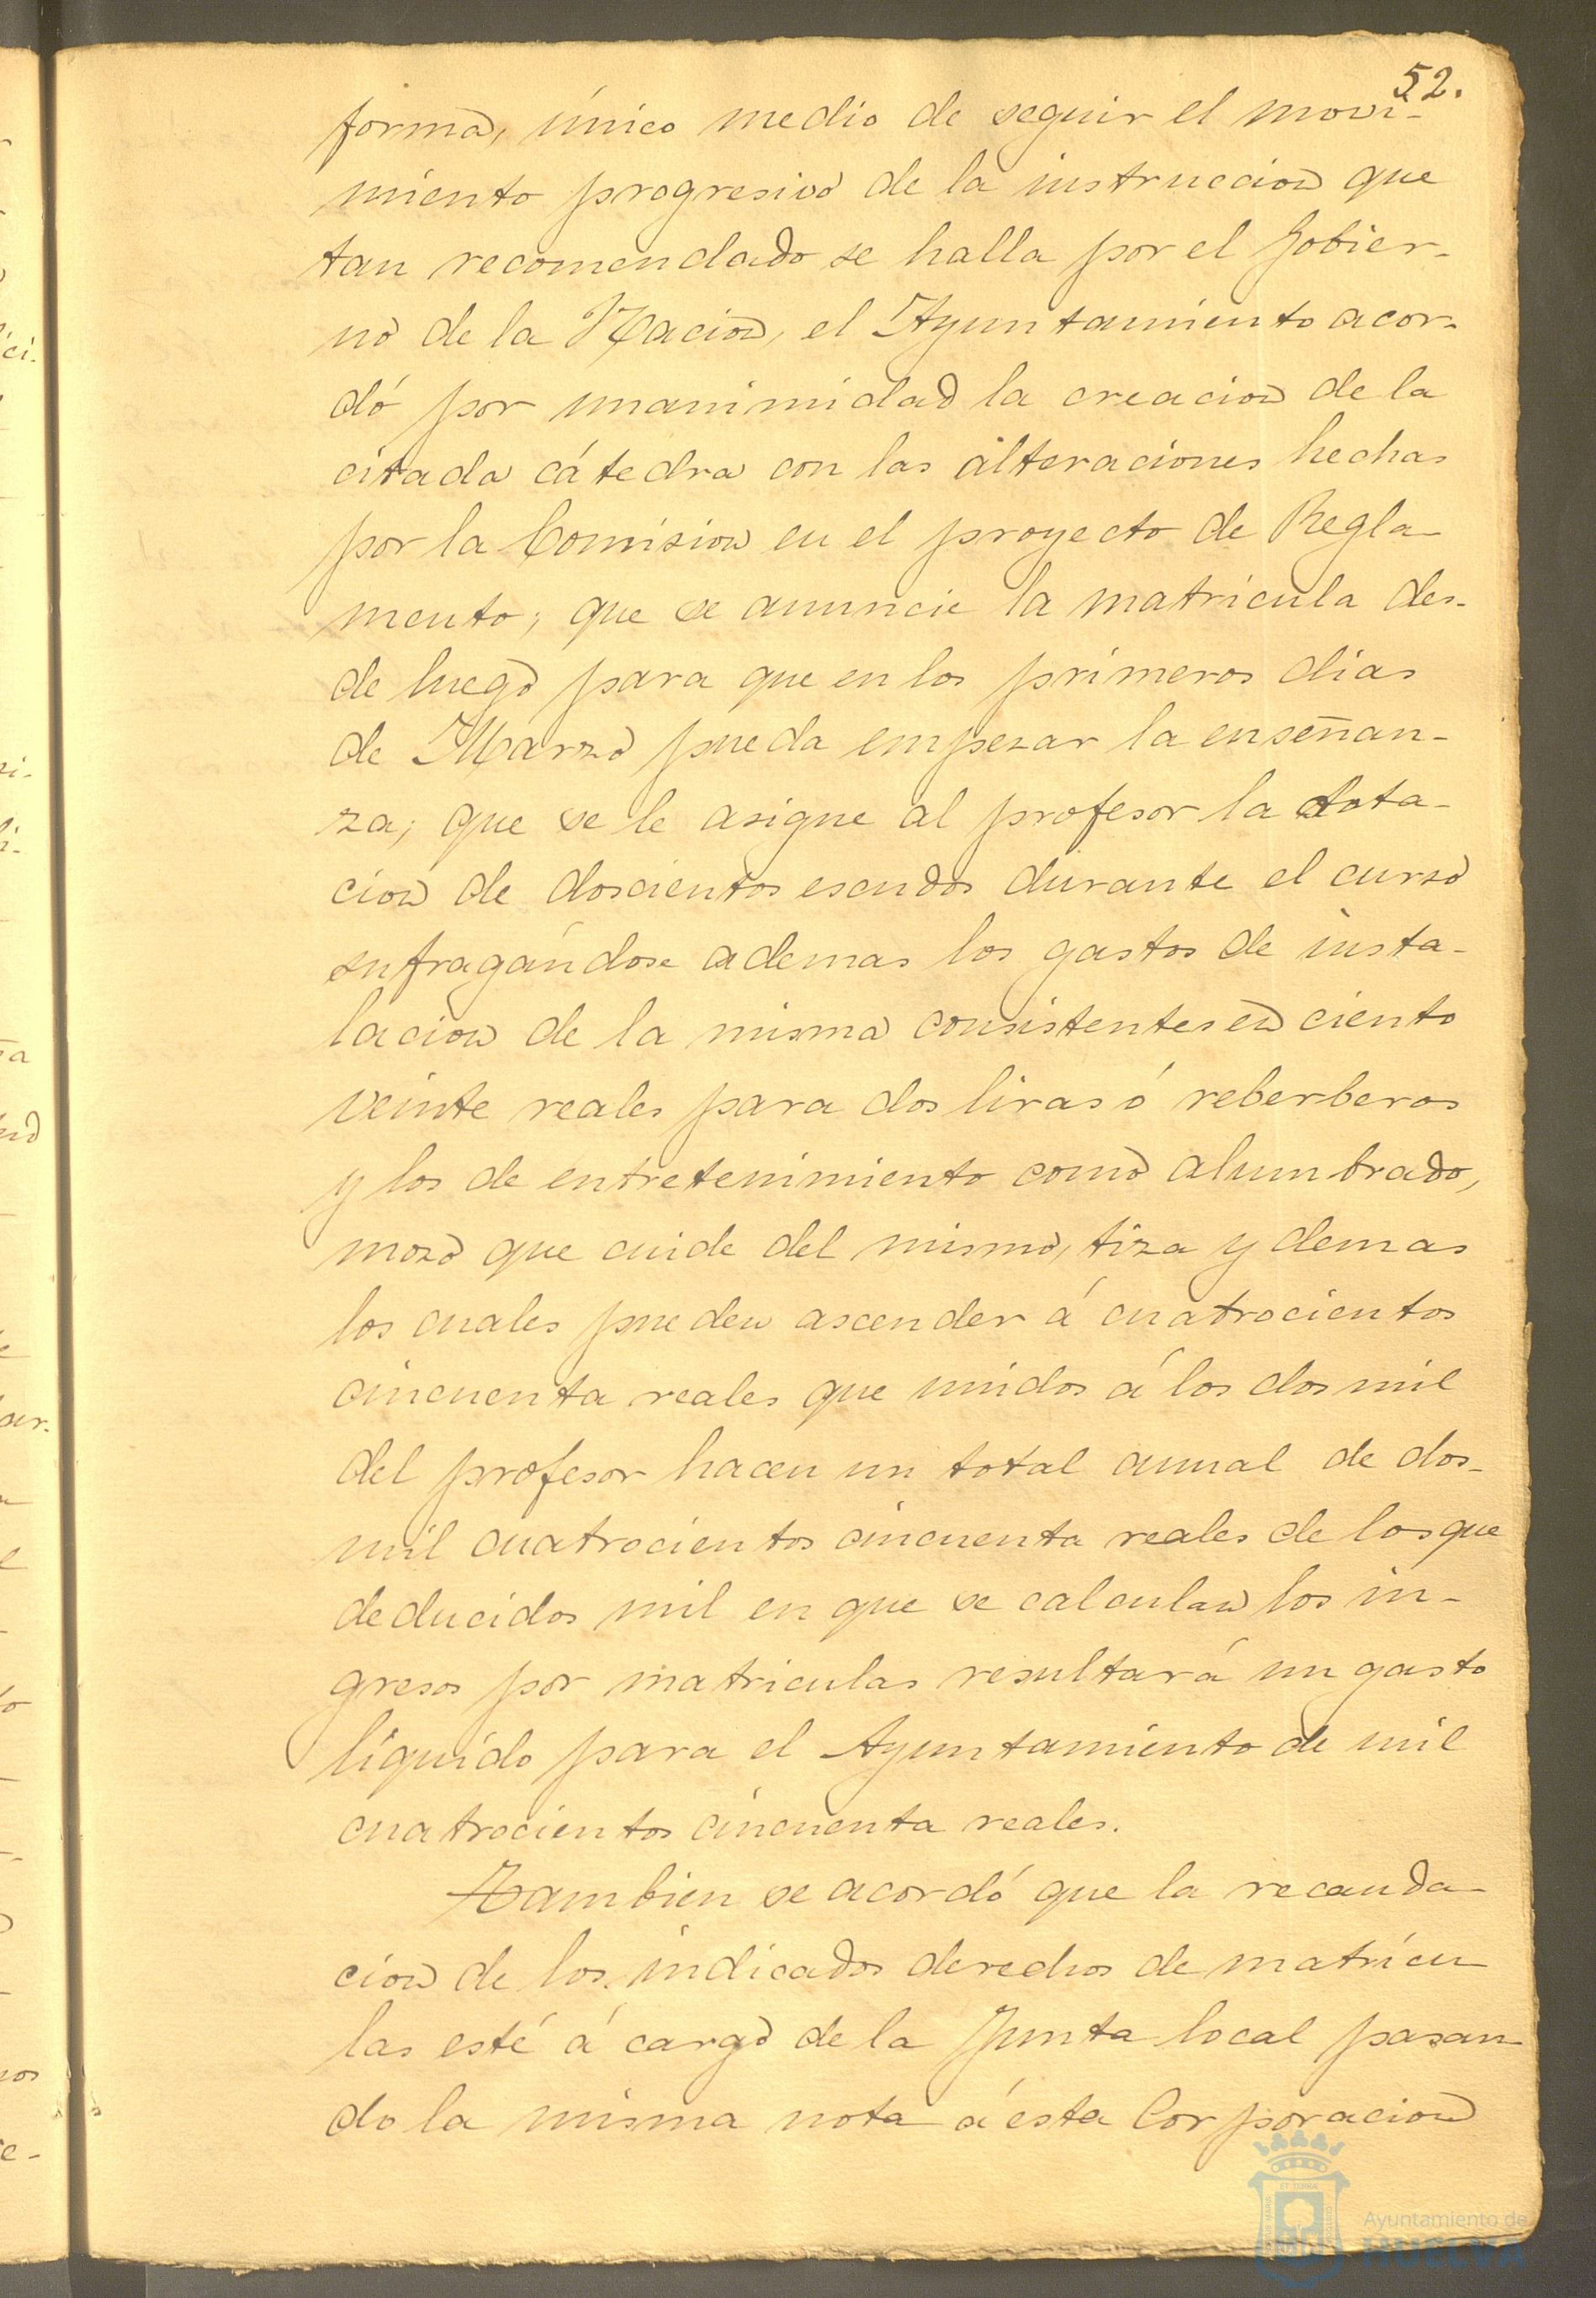 52.
forma, único medio de seguir el movi-
miento progresivo de la instruccion que
tan recomendado se halla por el Gobier-
no de la Nacion, el Ayuntamiento acor-
dó por unanimidad la creacion de la
citada cátedra con las alteraciones hechas
por la Comision en el proyecto de Regla-
mento; que se anuncie la matrícula des-
de luego para que en los primeros dias
de Marzo pueda empezar la enseñan-
za; que se le asigne al profesor la dota-
cion de doscientos escudos durante el curso
sufragándose ademas los gastos de insta-
lacion de la misma consistentes en ciento
veinte reales para dos liras ó reberberos
y los de entretenimiento como alumbrado,
mozo que cuide del mismo, tiza y demas
los cuales pueden ascender á cuatrocientos
cincuenta reales que unidos á los dos mil
del profesor hacen un total anual de dos-
mil cuatrocientos cincuenta reales de los que
deducidos mil en que se calculan los in-
gresos por matriculas resultará un gasto
líquido para el Ayuntamiento de mil
cuatrocientos cincuenta reales.
Tambien se acordó que la recauda-
cion de los indicados derechos de matrícu-
las esté á cargo de la Junta local pasan-
do la misma nota á esta Corporacion
Ayuntamiento de
HUELVA